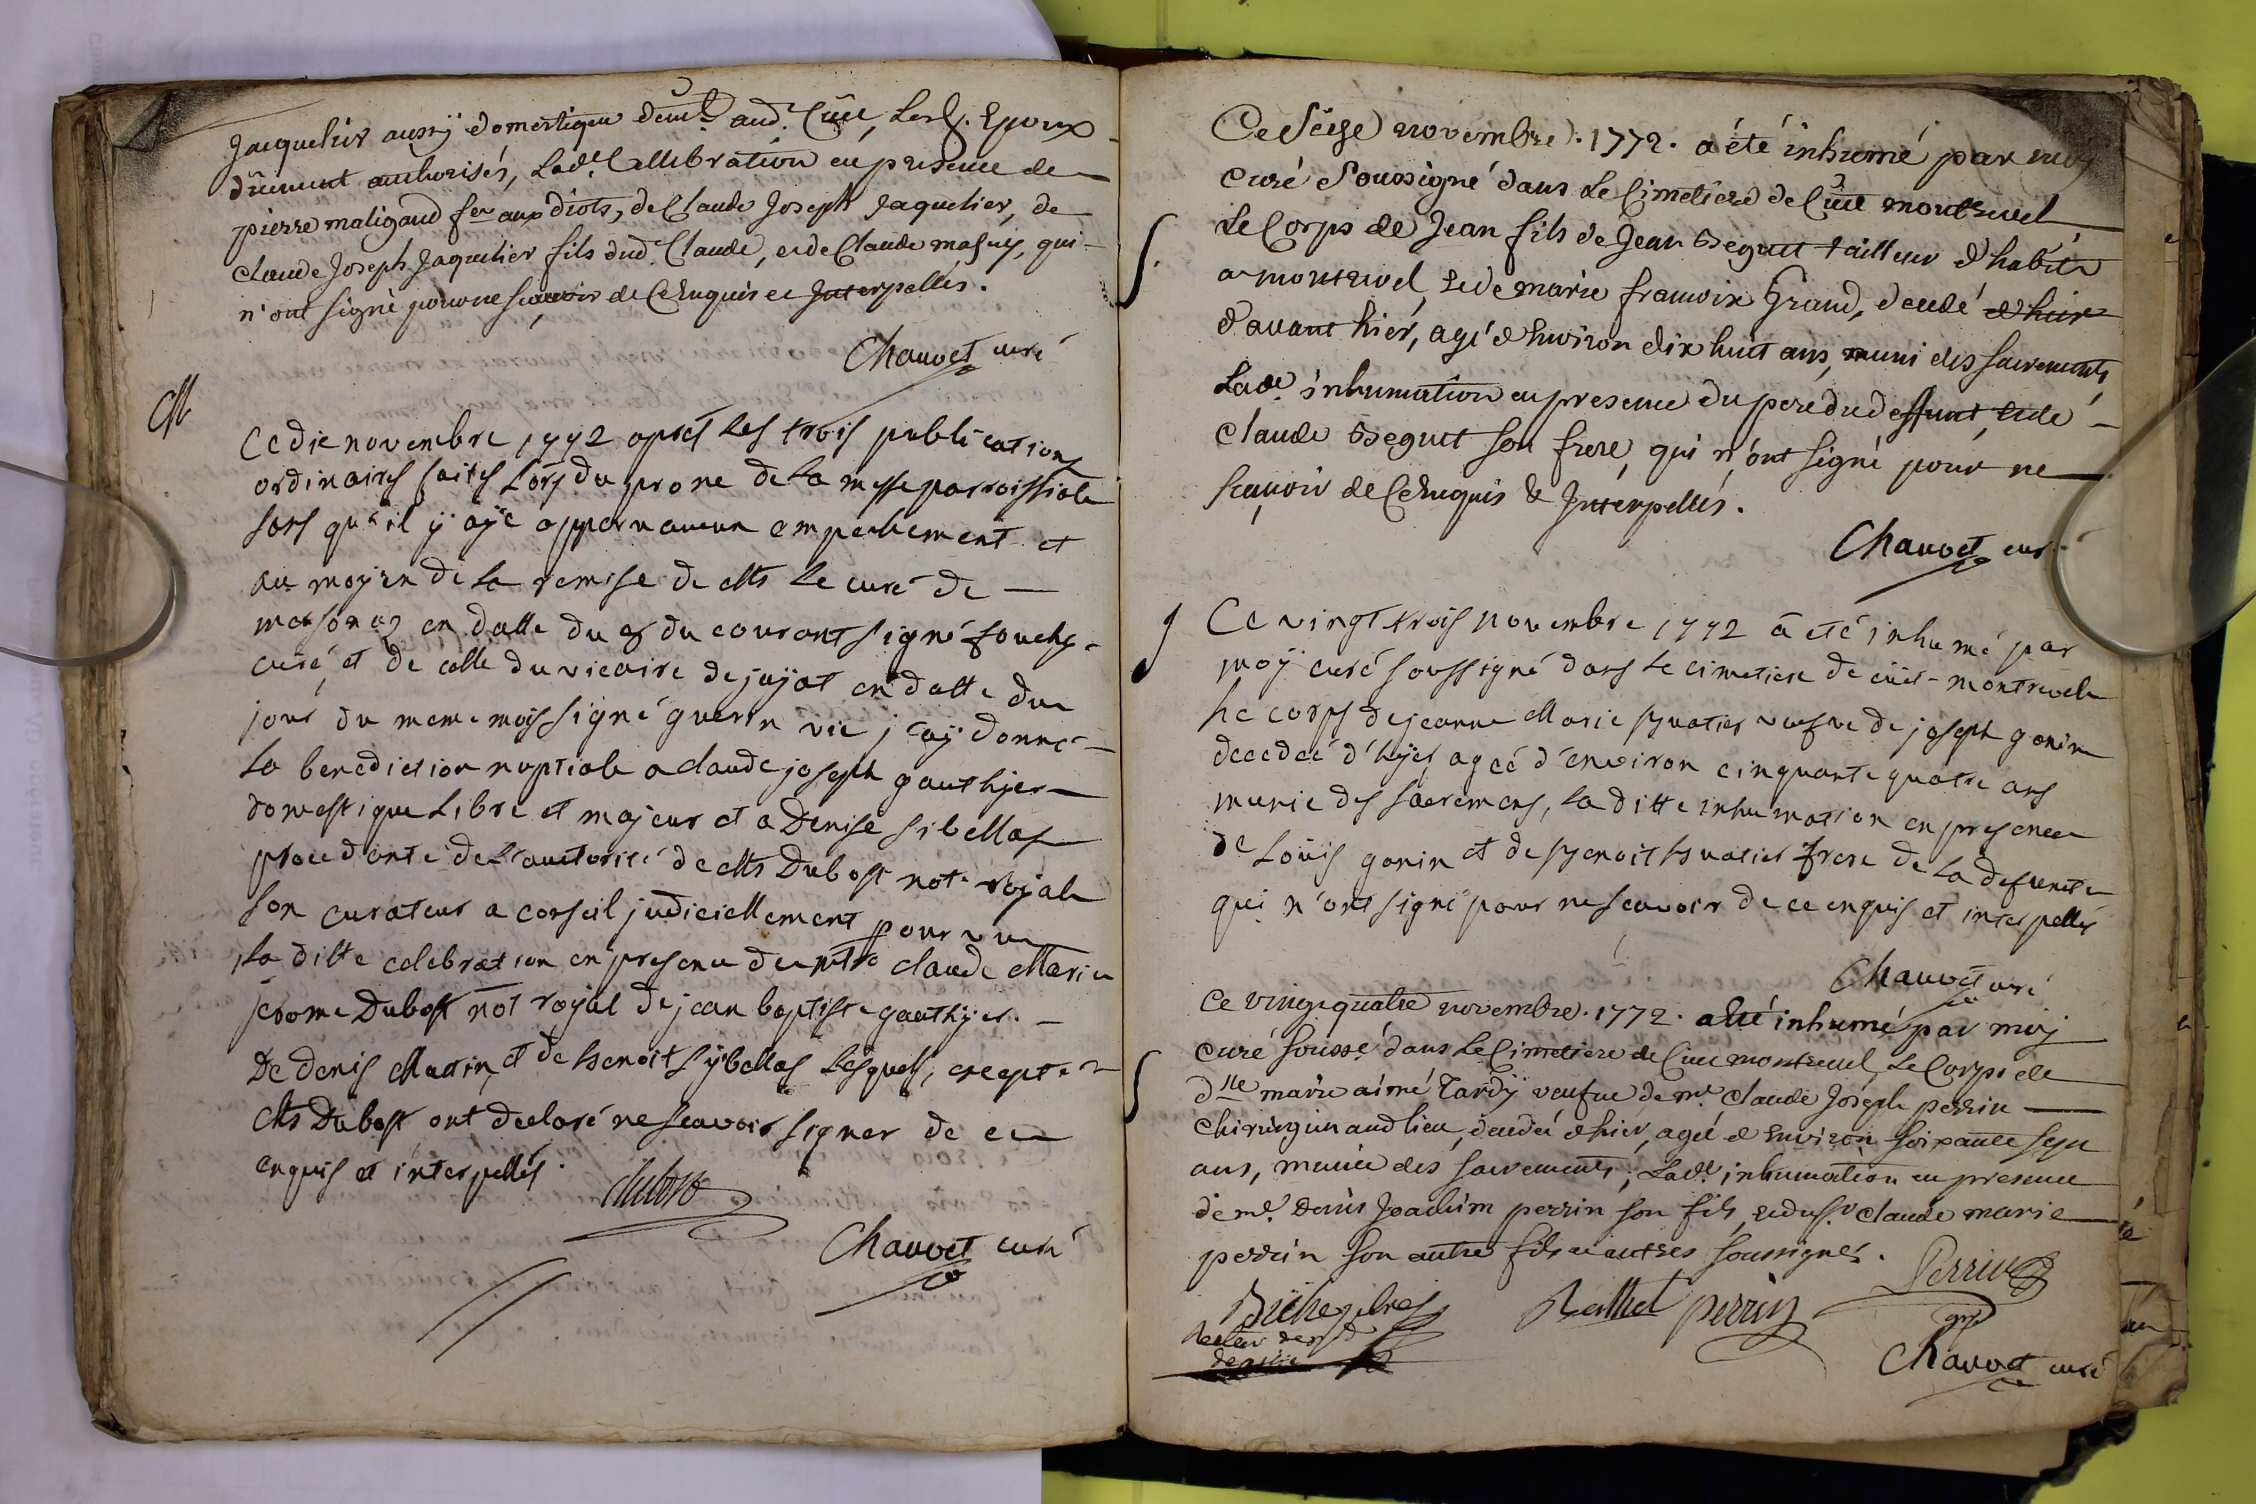 Jacquelier aussy domestique demt. aud. Cüet, lesd. Epoux
düement authorisés, Lade. Cellebration en presence de
pierre maligaud fer. aux diots, de Claude Joseph Jaquelier, de
claude Joseph Jaquelier fils dud. Claude, et de Claude masuy, qui
n'ont signé pour ne sçavoir de Ce Enquis et Interpellés.
Chauvet curé
M
Ce dix novembre 1772 apres les trois publications
ordinaires faites Lors du prone de la messe parroissiale
sans qu'il y aÿe apparu aucun empechement et
au moyen de la remise de Mts le curé de
marsonas en datte du 8 du courant signé
curé, et de celle du vicaire de jayat en datte du
jour du meme mois signé guerin vic j'aÿ donné
la benediction nuptiale a claude joseph gauthier
domestique Libre et majeur et a Denise sibellas
procedante de L'auctorité de Mts Dubost note. royale
son curateur a conseil judiciellement pourvue
la ditte celebration en presence de mtre claude Marie
jerome Dubost not royal de jean baptiste gauthÿer
De denis Mutin, et de benoit Sÿbellas Lesquels, excepté
Mts Dubost ont declaré ne scavoir signer de ce
enquis et interpellés.
Dubost
Chauvet curé
Ce Seise novembre. 1772. a été inhumé par moy
curé Soussigné dans le Cimetiere de Cüet montrevel
Le Corps de Jean fils de Jean Beguet tailleur d'habits
a montrevel, et de marie francoise Grand, decedé d'hier
d'avant hier, agé d'Environ dix huit ans, muni des sacrements,
Lade. inhumation en presence du pere dud effunt, et de
Claude Beguet son frere, qui n'ont signé pour ne
sçavoir de Ce Enquis & Interpellés.
Chauvet curé
Ce vingt trois novembre 1772 a eté inhumé par
moÿ curé soussigné dans le cimetiere de cüet-montrevel
Le corps de jeanne Marie veufve de joseph gonin
decedeé d'hyer ageé d'environ cinquante quatre ans
munie des sacremens, la ditte inhumation en presence
de Loüis gonin et de benoit frere de la defuncte
qui n'ont signé pour ne scavoir de ce enquis et interpellés
Chauvet curé
Ce vingt quatre novembre. 1772. a été inhumé par moy
Curé sousse. dans Le Cimetiere de Cuet montrevel, Le Corps de
dlle marie aimé Tardy veufve de mr. claude Joseph perrin
Chirurgien aud lieu, decedeé d'hier, ageé d'Environ soixante sept
ans, munie des sacrements; Lade. inhumation en presence
de mr. Denis Joachim perrin son fils, et du sr. claude marie
perrin son autre fils et autres soussignés.
Perrin
perrin
Chauvet curé